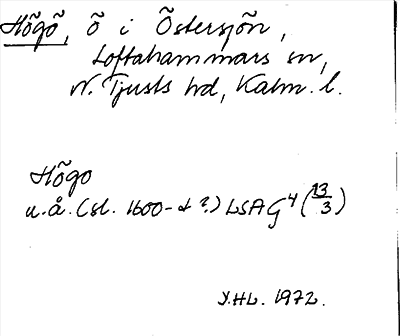 Högö, ö i Östersjön,
Loftahammars sn,
N. Tjusts hd, Kalm. l.
Högo
u.å. (sl. 1600-t ?) LSA G4 (13/3)
J.HL. 1972.